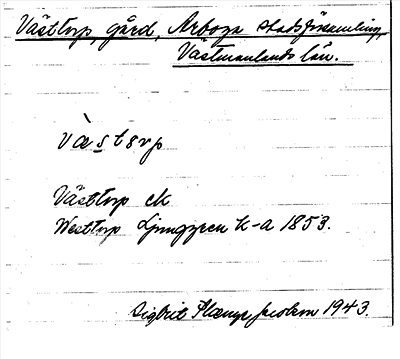 Västtorp, gård, Arboga stadsförsamling,
Västmanlands län.
Västtorp ek
Westtorp Ljunggren k-a 1853.
Sigbrit Jacobson 1943.